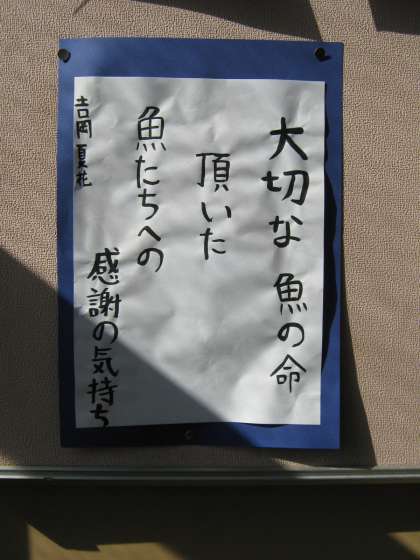 大切な魚の命
頂いた
魚たちへの
感謝の気持ち
吉岡夏花